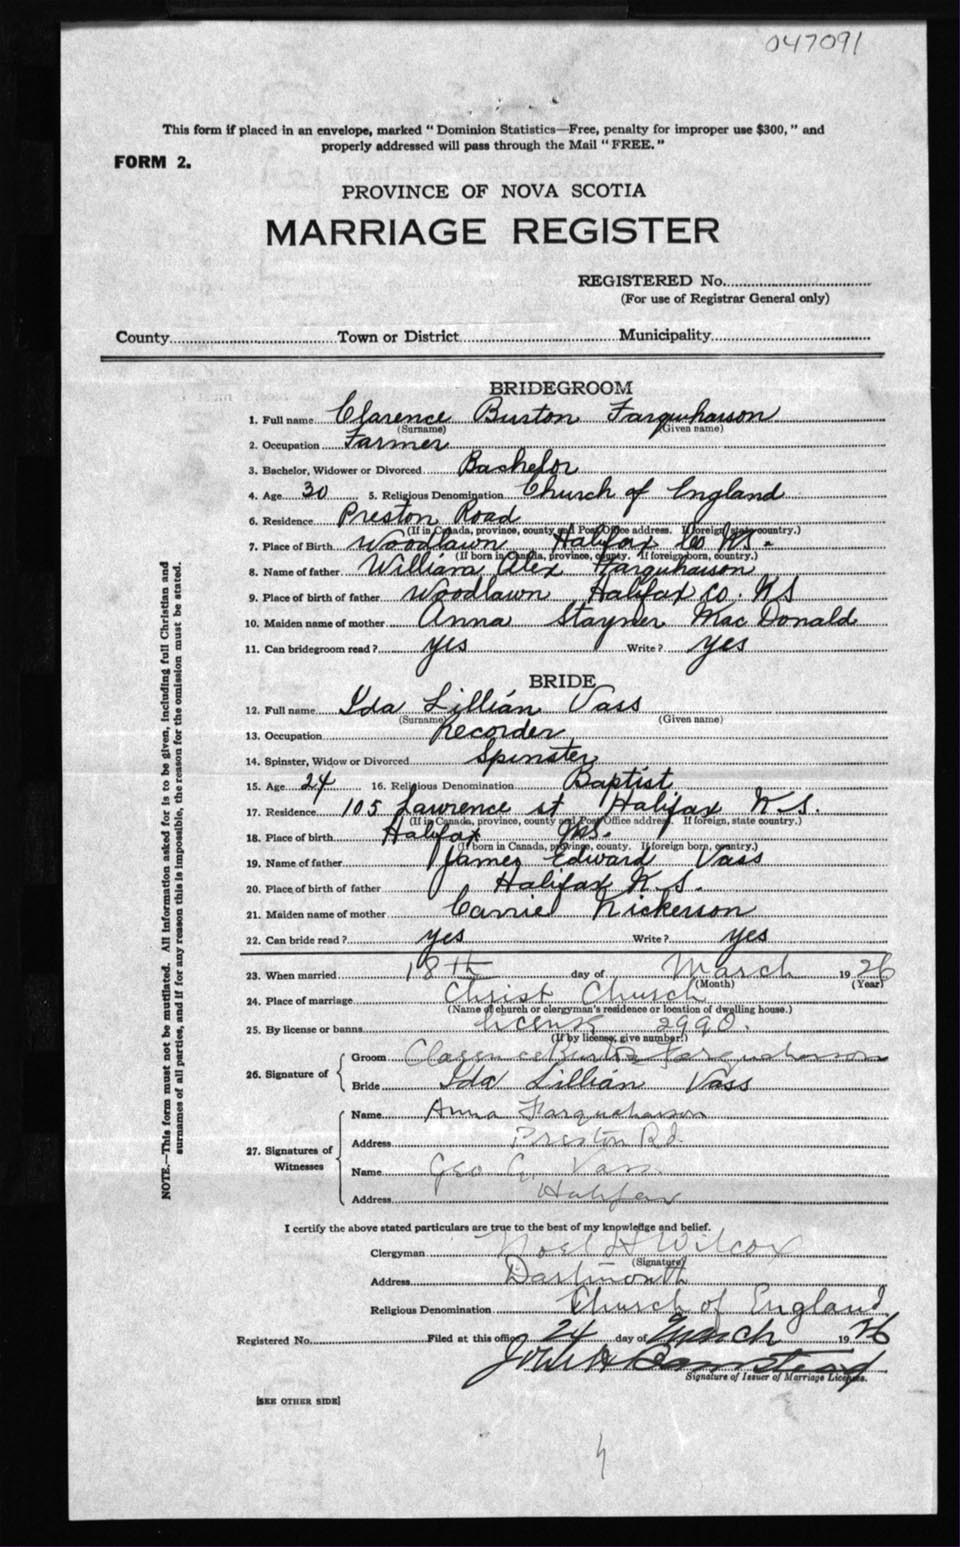 047091
This form if placed in an envelope, marked "Dominion Statistics—Free, penalty for improper use $300," and
properly addressed will pass through the Mail "FREE."
FORM 2.
PROVINCE OF NOVA SCOTIA
MARRIAGE REGISTER
REGISTERED No.
(For use of Registrar General only)
County Town or District Municipality
NOTE.—This form must not be mutilated. All information asked for is to be given, including full Christian and
surnames of all parties, and if for any reason this is impossible, the reason for the omission must be stated.
BRIDEGROOM
1. Full name Clarence Burton Farquharson
(Surname) (Given name)
2. Occupation Farmer
3. Bachelor, Widower or Divorced Bachelor
4. Age 30 5. Religious Denomination Church of England
6. Residence Preston Road
(If in Canada, province, county and Post Office address. If foreign, state country.)
7. Place of Birth Woodlawn Halifax Co N.S.
(If born in Canada, province, county. If foreign born, country.)
8. Name of father William Alex Farquharson
9. Place of birth of father Woodlawn Halifax Co. N S
10. Maiden name of mother Anna Stayner Mac Donald
11. Can bridegroom read? yes Write? yes
BRIDE
12. Full name Ida Lillian Vass
(Surname) (Given name)
13. Occupation Recorder
14. Spinster, Widow or Divorced Spinster
15. Age 24 16. Religious Denomination Baptist
17. Residence 105 Lawrence st Halifax N.S.
(If in Canada, province, county and Post Office address. If foreign, state country.)
18. Place of birth Halifax N.S.
(If born in Canada, province, county. If foreign born, country.)
19. Name of father James Edward Vass
20. Place of birth of father Halifax N.S.
21. Maiden name of mother Carrie Nickerson
22. Can bride read? yes Write? yes
23. When married 18th day of March 1926
(Month) (Year)
24. Place of marriage Christ Church
(Name of church or clergyman's residence or location of dwelling house.)
25. By license or banns license 2990.
(If by license, give number.)
26. Signature of
Groom Clarence Burton Farquharson
Bride Ida Lillian Vass
27. Signatures of
Witnesses
Name Anna Farquharson
Address Preston Rd.
Name Geo G. Vass
Address Halifax
I certify the above stated particulars are true to the best of my knowledge and belief.
Clergyman Noel H Wilcox
(Signature)
Address Dartmouth
Religious Denomination Church of England
Registered No. Filed at this office 24 day of March 1926
Signature of Issuer of Marriage Licenses.
[SEE OTHER SIDE]